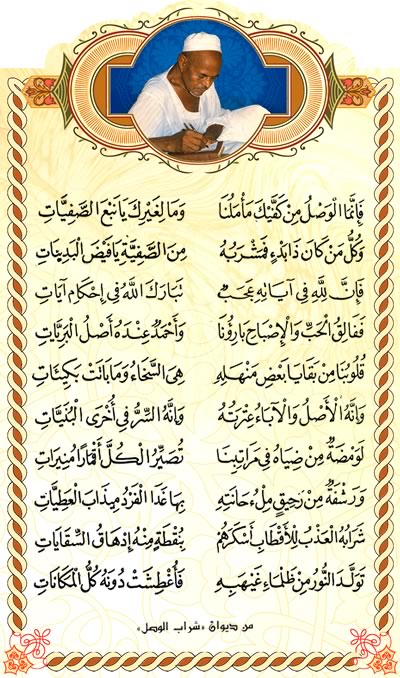 فَإِنَّمَا الْوَصْلُ مِنْ كَفَّيْكَ مَأْمَلُنَا وَمَا لِغَيْرِكَ يَا نَبْعَ الصَّفِيَّاتِ
وَكُلُّ مَنْ كَانَ ذَا بَدْءٍ فَمَشْرَبُهُ مِنَ الصَّفِيَّةِ يَا فَيْضَ الْبَدِيعَاتِ
فَإِنَّ لِلَّهِ فِي آيَاتِهِ عَجَبٌ تَبَارَكَ اللَّهُ فِي إِحْكَامِ آيَاتِ
فَفَالِقُ الْحَبِّ وَالْإِصْبَاحِ بَارِؤُنَا وَأَحْمَدٌ عِنْدَهُ أَصْلُ الْبَرِيَّاتِ
قُلُوبُنَا مِنْ بَقَايَا بَعْضِ مَنْهَلِهِ هِيَ السَّخَاءُ وَمَا بَاتَتْ بَكِيَّاتِ
وَإِنَّهُ الْأَصْلُ وَالْآبَاءُ عِتْرَتُهُ وَإِنَّهُ السِّرُّ فِي أُخْرَى الْبُنَيَّاتِ
لَوَمْضَةٌ مِنْ ضِيَاهُ فِي مَرَاتِبِنَا تُصَيِّرُ الْكُلَّ أَقْمَارًا مُنِيرَاتِ
وَرَشْفَةٌ مِنْ رَحِيقٍ مِلْءُ حَانَتِهِ بِهَا غَدَا الْفَرْدُ مِهْذَابَ الْعَطِيَّاتِ
شَرَابُهُ الْعَذْبُ لِلْأَقْطَابِ أَسْكَرَهُمْ بِنُقْطَةٍ مِنْهُ إِدْهَاقُ السِّقَايَاتِ
تَوَلَّدَ النُّورُ مِنْ ظَلْمَاءِ غَيْهَبِهِ فَأُغْطِشَتْ دُونَهُ كُلُّ الْمَكَانَاتِ
من ديوان «شراب الوصل»